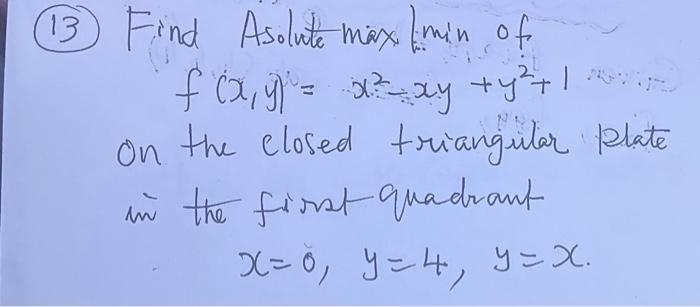 13 Find Asolute max/min of
f(x,y) = x²-xy+y²+1
on the closed triangular plate
in the first quadrant
x=0, y=4, y=x.